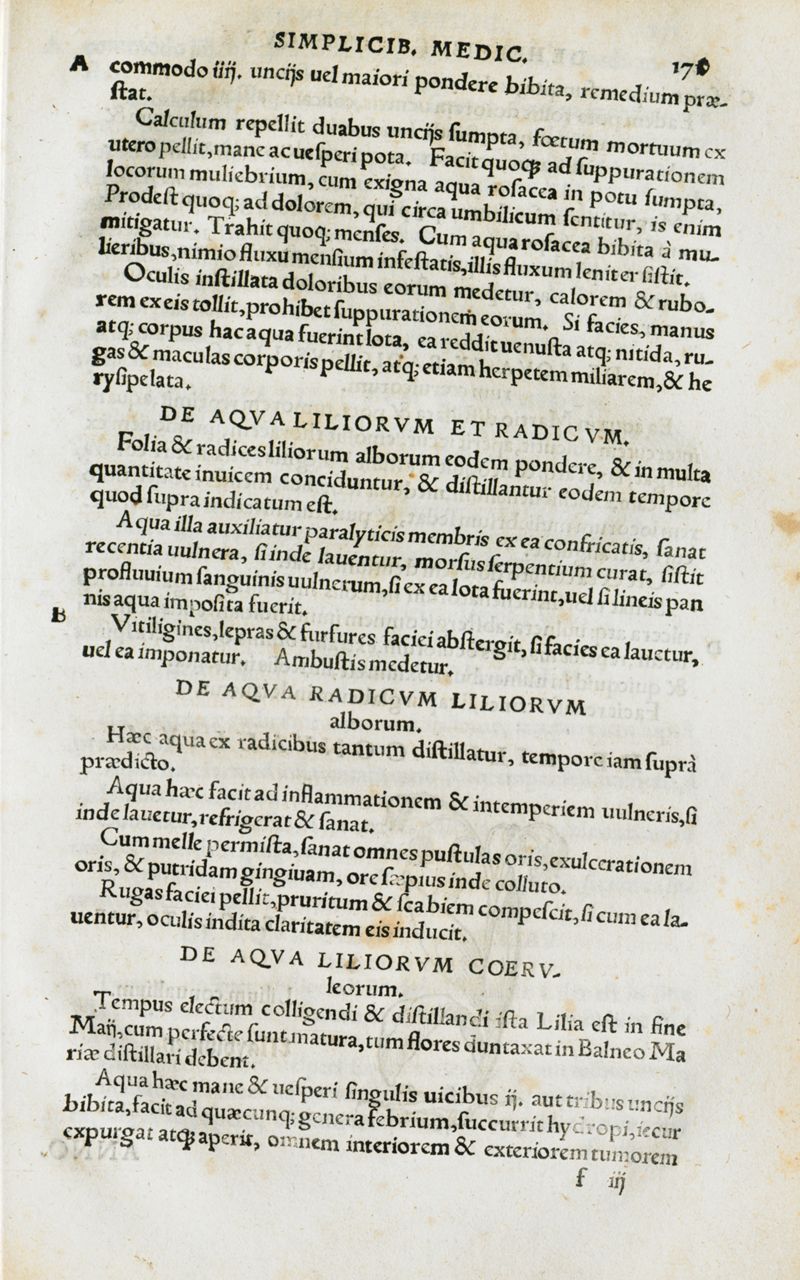 SIMPLICIB. MEDIC.
A commodo iiij. uncijs uel maiori pondere bibita, remedium præ-
ſtat.
Calculum repellit duabus uncijs ſumpta, fœtum mortuum ex
utero pellit, mane ac ueſperi pota. Facit quoqꝫ ad ſuppurationem
locorum muliebrium, cum exigna aqua roſacea in potu ſumpta,
Prodeſt quoqꝫ ad dolorem, qui circa umbilicum ſentitur, is enim
mitigatur. Trahit quoqꝫ menſes. Cum aqua roſacea bibita à mu-
lieribus, nimio fluxu menſium infeſtatis, illis fluxum leniter ſiſtit.
Oculis inſtillata doloribus eorum medetur, calorem & rubo-
rem ex eis tollit, prohibet ſuppurationem eorum. Si facies, manus
atqꝫ corpus hac aqua fuerint lota, ea reddit uenuſta atqꝫ nitida, ru-
gas & maculas corporis pellit, atqꝫ etiam herpetem miliarem, & he
ryſipelata.
DE AQVA LILIORVM ET RADICVM.
Folia & radices liliorum alborum eodem pondere, & in multa
quantitate inuicem conciduntur, & diſtillantur eodem tempore
quod ſupra indicatum eſt.
Aqua illa auxiliatur paralyticis membris ex ea confricatis, ſanat
recentia uulnera, ſi inde lauentur, morſus ſerpentium curat, ſiſtit
profluuium ſanguinis uulnerum, ſi ex ea lota fuerint, uel ſi lineis pan
nis aqua impoſita fuerit.
B Vitiligines, lepras & furfures faciei abſtergit, ſi facies ea lauetur,
uel ea imponatur. Ambuſtis medetur.
DE AQVA RADICVM LILIORVM
alborum.
Hæc aqua ex radicibus tantum diſtillatur, tempore iam ſuprà
prædicto.
Aqua hæc facit ad inflammationem & intemperiem uulneris, ſi
inde lauetur, refrigerat & ſanat.
Cum melle permiſta, ſanat omnes puſtulas oris, exulcerationem
oris, & putridam gingiuam, ore ſæpius inde colluto.
Rugas faciei pellit, pruritum & ſcabiem compeſcit, ſi cum ea la-
uentur, oculis indita claritatem eis inducit.
DE AQVA LILIORVM COERV-
leorum.
Tempus electum colligendi & diſtillandi iſta Lilia eſt in fine
Maij, cum perfecte ſunt matura, tum flores duntaxat in Balneo Ma
riæ diſtillari debent.
Aqua hæc mane & ueſperi ſingulis uicibus ij. aut tribus uncijs
bibita, facit ad quæcunqꝫ genera febrium, ſuccurrit hydropi, iecur
expurgat atqꝫ aperit, omnem interiorem & exteriorem tumorem
f iij